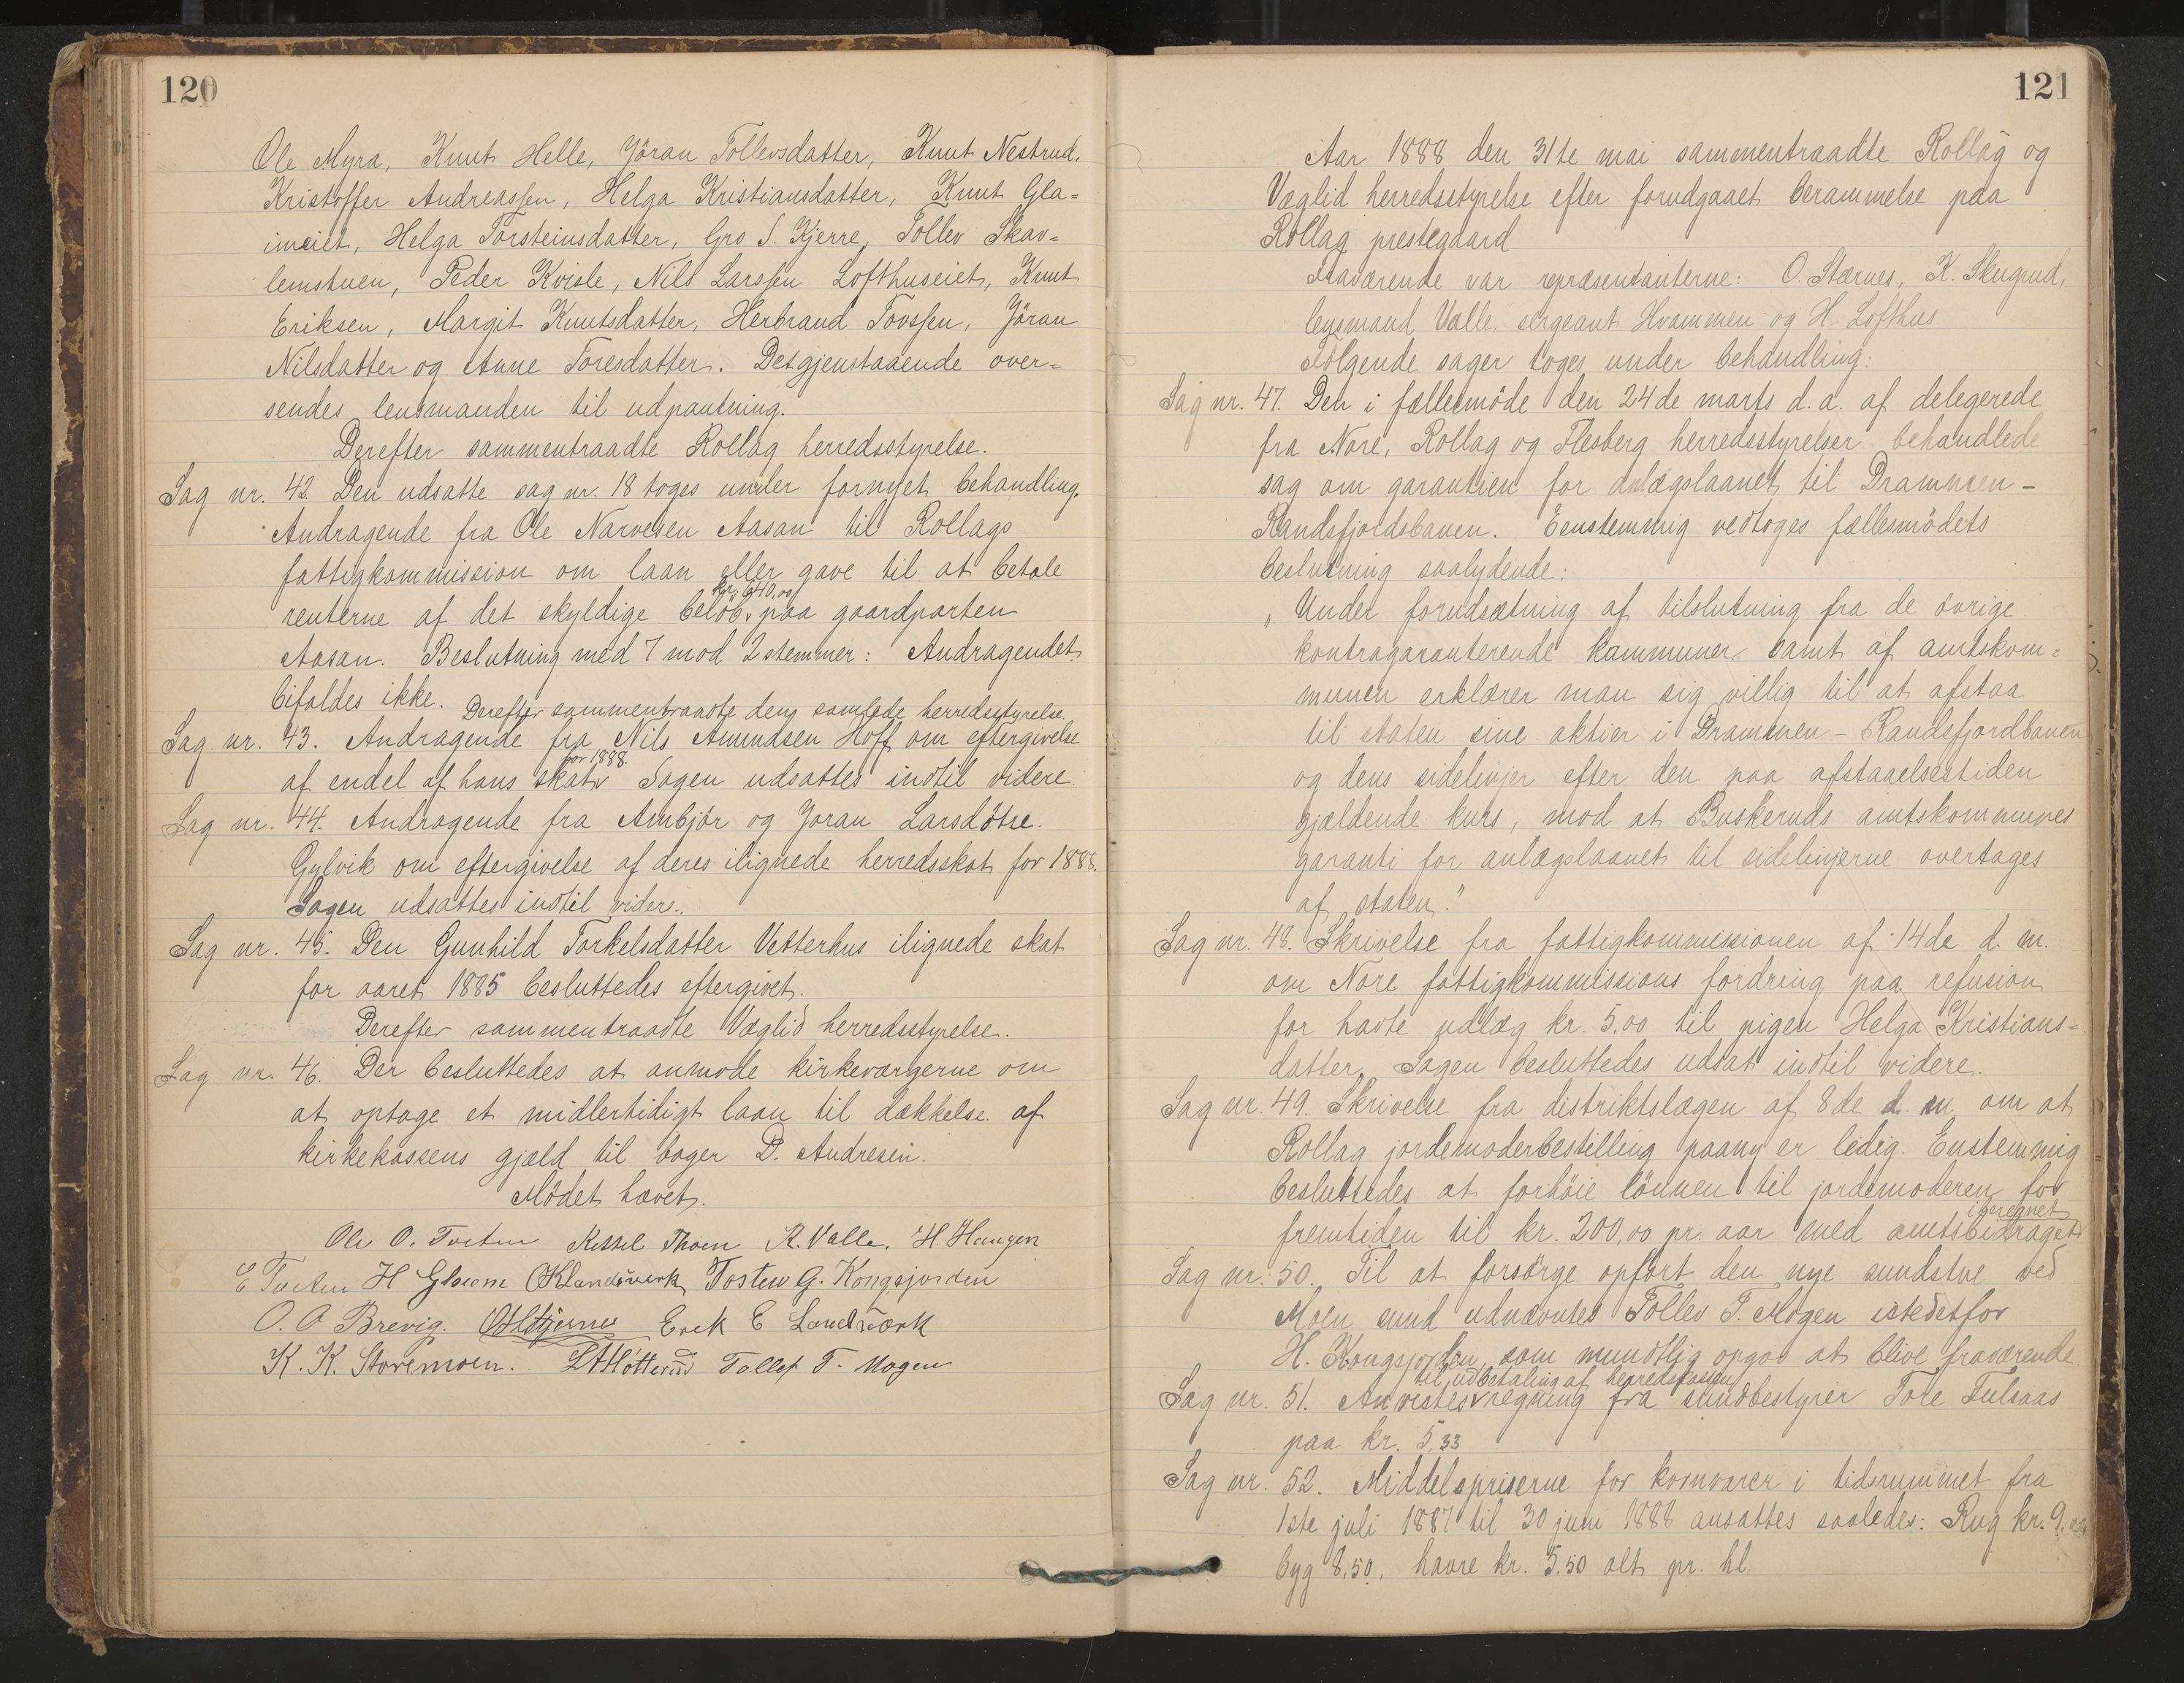 120
Ole Myra, Knut Helle, Jöran Tollevsdatter, Knut Nestrud,
Kristoffer Andreassen, Helga Kristiansdatter, Knut Gla=
imeiet, Helga Torsteinsdatter, Gro S. Kjerre, Tollev Skav=
lemstuen, Peder Kvisle, Nils Larssen Lofthuseiet, Knut
Eriksen, Margit Knutsdatter, Herbrand Tovssen, Jöran
Nilsdatter og Anne Toresdatter. Desgjenstaaende over=
sendes lensmanden til udpantning.
Derefter sammentraadte Rollag herredsstyrelse.
Sag nr. 42. Den udsatte sag nr. 18 toges under fornyet behandling.
Andragende fra Ole Narvesen Aasan til Rollags
fattigkommission om laan eller gave til at betale
kr. 640,00
renterne af det skyldige belöb paa gaardparten
Aasan. Beslutning med 7 mod 2 stemmer: Andragendet
bifaldes ikke. Derefter sammentraadte den samlede herredsstyrelse
Sag nr. 43. Andragende fra Nils Amundsen Hoff om eftergivelse
for 1888.
af endel af hans skat Sagen udsattes indtil videre.
Sag nr. 44. Andragende fra Anbjör og Joran Larsdötre
Gylvik om eftergivelse af deres ilignede herredsskat for 1888.
Sagen udsattes indtil videre.
Sag nr. 45. Den Gunhild Torkelsdatter Vetterhus ilignede skat
for aaret 1885 besluttedes eftergivet.
Derefter sammentraadte Væglid herredsstyrelse.
Sag nr. 46. Der besluttedes at anmode kirkeværgerne om
at optage et midlertidigt laan til dækkelse af
kirkekassens gjæld til bager D. Andresen.
Mödet hævet.
Ole O. Kittil Thoen K. Valle. H. Haugen
E H Glaim OKLandsverk Tosten G. Kongsjorden
O. O Brevig. Erek E Landværk
K. K. Storemoen. Tollef T. Mogen
121
Aar 1888 den 31te mai sammentraadte Rollag og
Væglid herredsstyrelse efter forudgaaet berammelse paa
Rollag prestegaard
Fraværende var repræsentanterne: O. Stærnes, K. Skugrud,
lensmand Valle, sergeant Hvammen og H. Lofthus.
Fölgende sager toges under behandling:
Sag nr. 47. Den i fællesmöde den 24de marts d. a. af delegerede
fra Nore, Rollag og Flesberg herredsstyrelser behandlede
sag om garantien for anlægslaanet til Drammen-
Randsfjordsbanen. Eenstemmig vedtoges fællesmödets
beslutning saalydende:
„Under forudsætning af tilslutning fra de övrige
kontragaranterende kommuner samt af amtskom=
munen erklærer man sig villig til at afstaa
til staten sine aktier i Drammen-Randsfjordbanen
og dens sidelinjer efter den paa afstaaelsestiden
gjældende kurs, mod at Buskeruds amtskommunes
garanti for anlægslaanet til sidelinjerne overtages
af staten."
Sag nr. 48. Skrivelse fra fattigkommissionen af 14de d. m.
om Nore fattigkommissions fordring paa refusion
for havte udlæg kr. 5,00 til pigen Helga Kristians=
datter. Sagen besluttedes udsat indtil videre.
Sag nr. 49. Skrivelse fra distriktslægen af 8de d. m. om at
Rollag jordemoderbestilling paany er ledig. Enstemmig
besluttedes at forhöie lönnen til jordemoderen for
iberegnet
fremtiden til kr. 200,00 pr. aar med amtsbidraget
Sag nr. 50. Til at forsörge opfört den nye sundstue ved
Moen sund udnævntes Tollev T. Mogen istedetfor
H. Kongsjorden, som mundtlig opgav at blive fraværende.
til udbetaling af herredskassen
Sag nr. 51. Anvistes regning fra sundbestyrer Tore Fulsaas
paa kr. 5,33
Sag nr. 52. Middelspriserne for kornvarer i tidsrummet fra
1ste juli 1887 til 30 juni 1888 ansattes saaledes: Rug kr. 9,
byg 8,50, havre kr. 5,50 alt pr. hl.